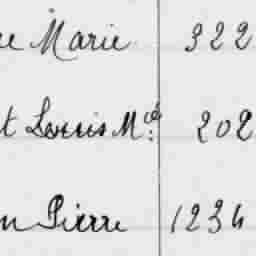 ne Marie 322
t Louis Mcd: 202
n Pierre 1234